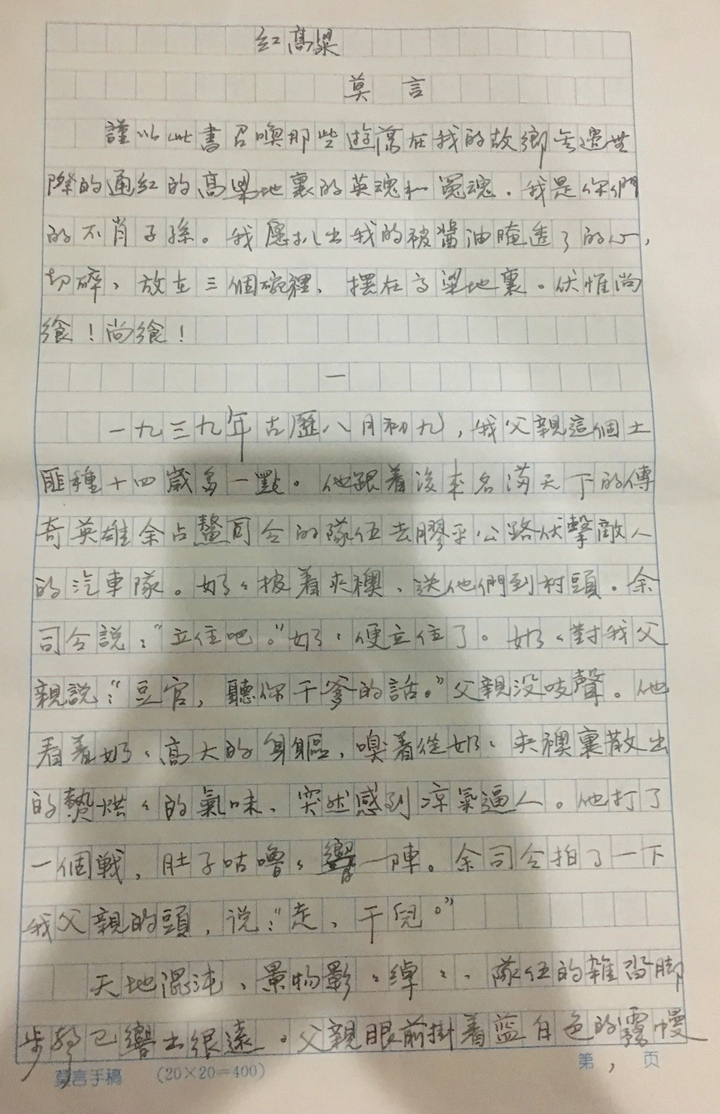 红高粱
莫言
謹以此書召喚那些遊蕩在我的故鄉無邊無
際的通紅的高粱地裏的英魂和冤魂。我是你們
的不肖子孫。我愿扒出我的被醬油腌透了的心,
切碎、放在三個碗裡、擺在高粱地裏。伏惟尚
飨!尚飨!
一
一九三九年古歷八月初九,我父親這個土
匪種十四歲多一點。他跟着後來名滿天下的傳
奇英雄余占鰲司令的隊伍去膠平公路伏擊敵人
的汽車隊。奶々披着夾襖、送他們到村頭。余
司令説:“立住吧。”奶々便立住了。奶々對我父
親説:“豆官,聽你干爹的話。”父親没吱聲。他
看着奶々高大的身軀,嗅着從奶々夾襖裏散出
的熱烘々的氣味、突然感到凉氣逼人。他打了
一個戰,肚子咕嚕々響一陣。余司令拍了一下
我父親的頭,说:“走、干兒。”
天地混沌、景物影々綽々、隊伍的雜沓脚
步聲已響出很遠。父親眼前掛着蓝白色的霧幔
莫言手稿 (20×20=400) 第1页